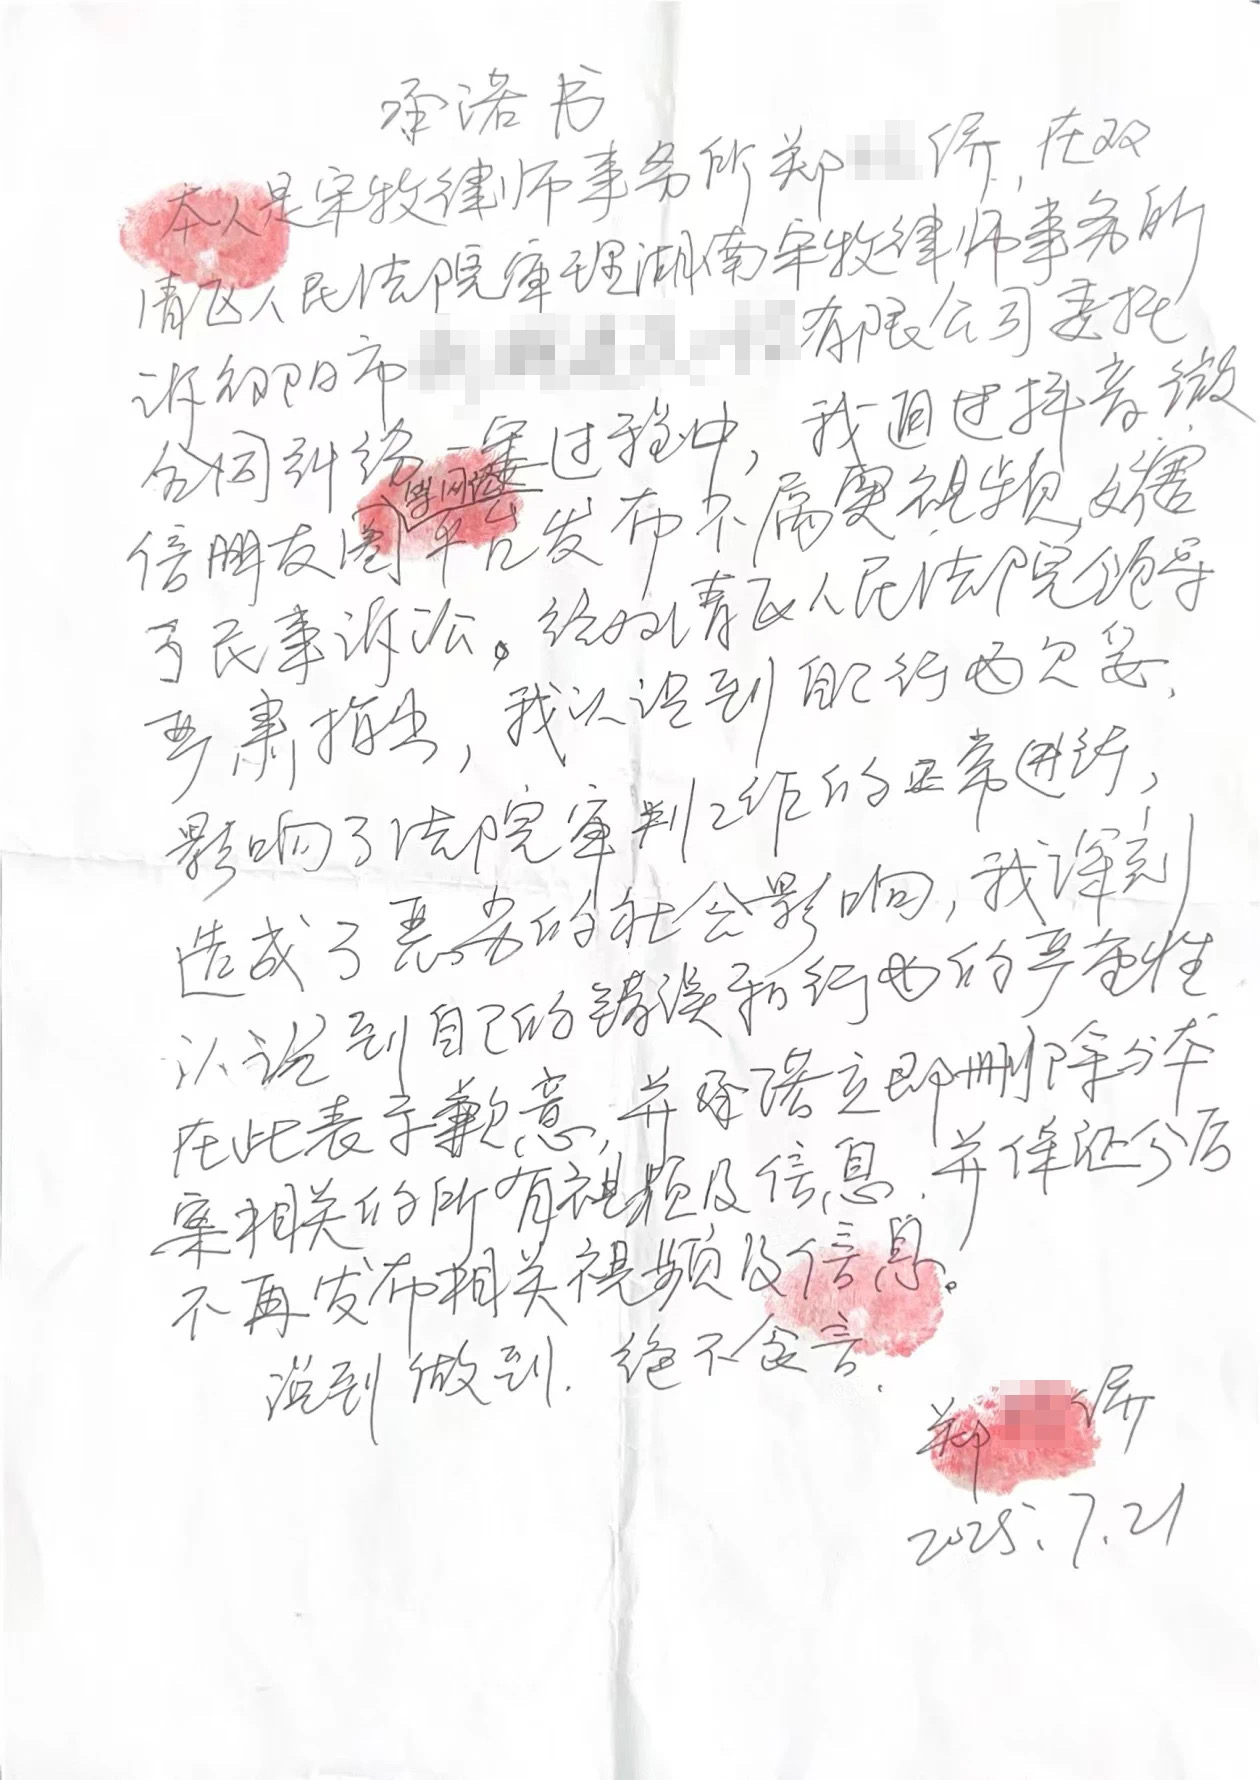 承诺书
本人是宋牧律师事务所郑 侨,在双
清区人民法院审理湖南宋牧律师事务所
诉邵阳市 有限公司委托
合同纠纷一案过程中,我通过抖音、微
信朋友圈等网络平台发布不属实视频,妨害
了民事诉讼。经双清区人民法院领导
严肃指出,我认识到自己行为欠妥,
影响了法院审判工作的正常进行,
造成了恶劣的社会影响,我深刻
认识到自己的错误和行为的严重性
在此表示歉意,并承诺立即删除与本
案相关的所有视频及信息,并保证今后
不再发布相关视频及信息。
说到做到,绝不食言.
郑 侨
2025.7.21